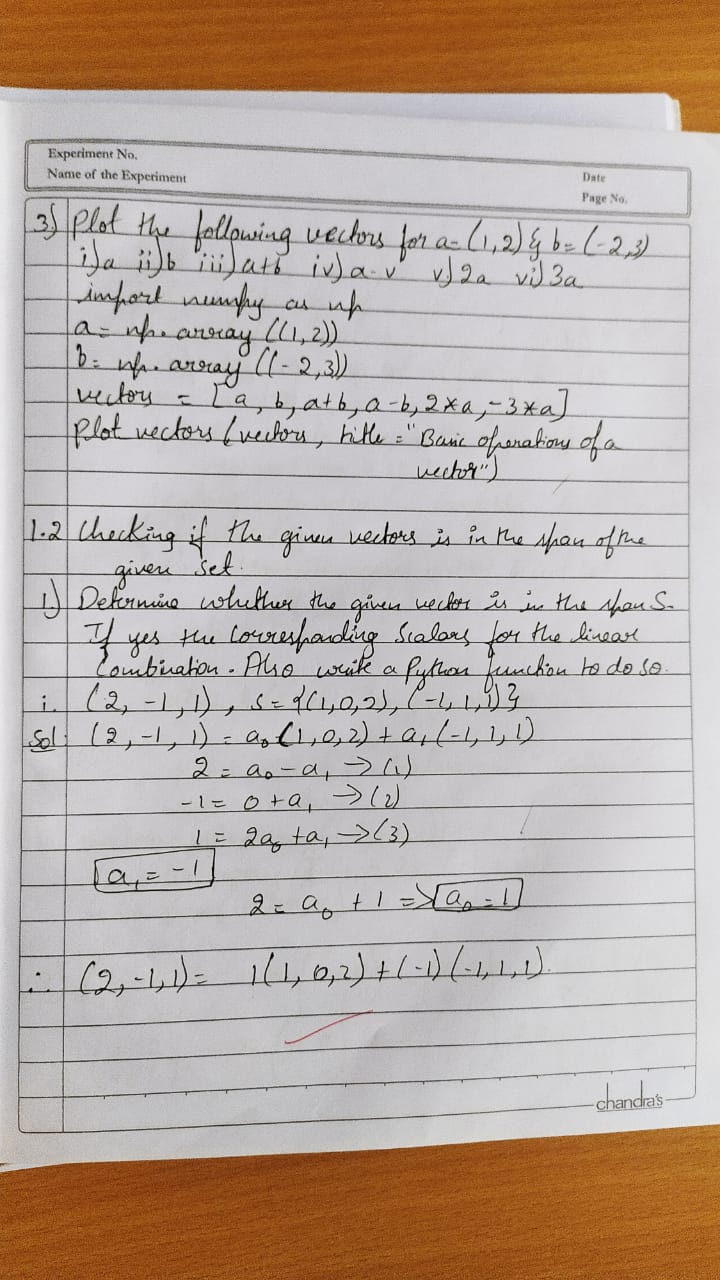 Experiment No.
Name of the Experiment
Date
Page No.
3) Plot the following vectors for a=(1,2) & b=(-2,3)
i) a ii) b iii) a+b iv) a-v v) 2a vi) 3a
import numpy as np
a= np.array((1,2))
b= np.array((-2,3))
vectors = [a, b, a+b, a-b, 2*a, -3*a]
Plot vectors (vectors, title ="Basic operations of a
vector")
1.2 Checking if the given vectors is in the span of the
given set.
1) Determine whether the given vector is in the span S.
If yes the corresponding Scalars for the linear
Combination. Also write a Python function to do so.
i. (2, -1, 1), S={(1,0,2), (-1,1,1)}
Sol: (2,-1, 1) = a₀(1,0,2) + a₁(-1, 1, 1)
2 = a₀-a₁ → (1)
-1 = 0+a₁ → (2)
1 = 2a₀ +a₁ → (3)
a₁ = -1
2 = a₀ + 1 => a₀ = 1
∴ (2,-1,1) = 1(1, 0,2) + (-1) (-1, 1, 1).
chandra's